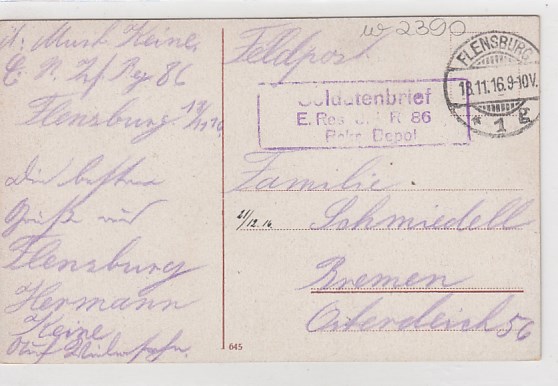 w 2390
Feldpost
FLENSBURG
18.11.16.9-10V.
* 1 g
Soldatenbrief
E. Res. R 86
Rekr. Depot
Musk. Heine
E. R. Rg. 86
Flensburg
Die besten
Grüße aus
Flensburg
Hermann
Heine
Familie
Schmiedell
21/12.16
Bremen
Osterdeich 56
645